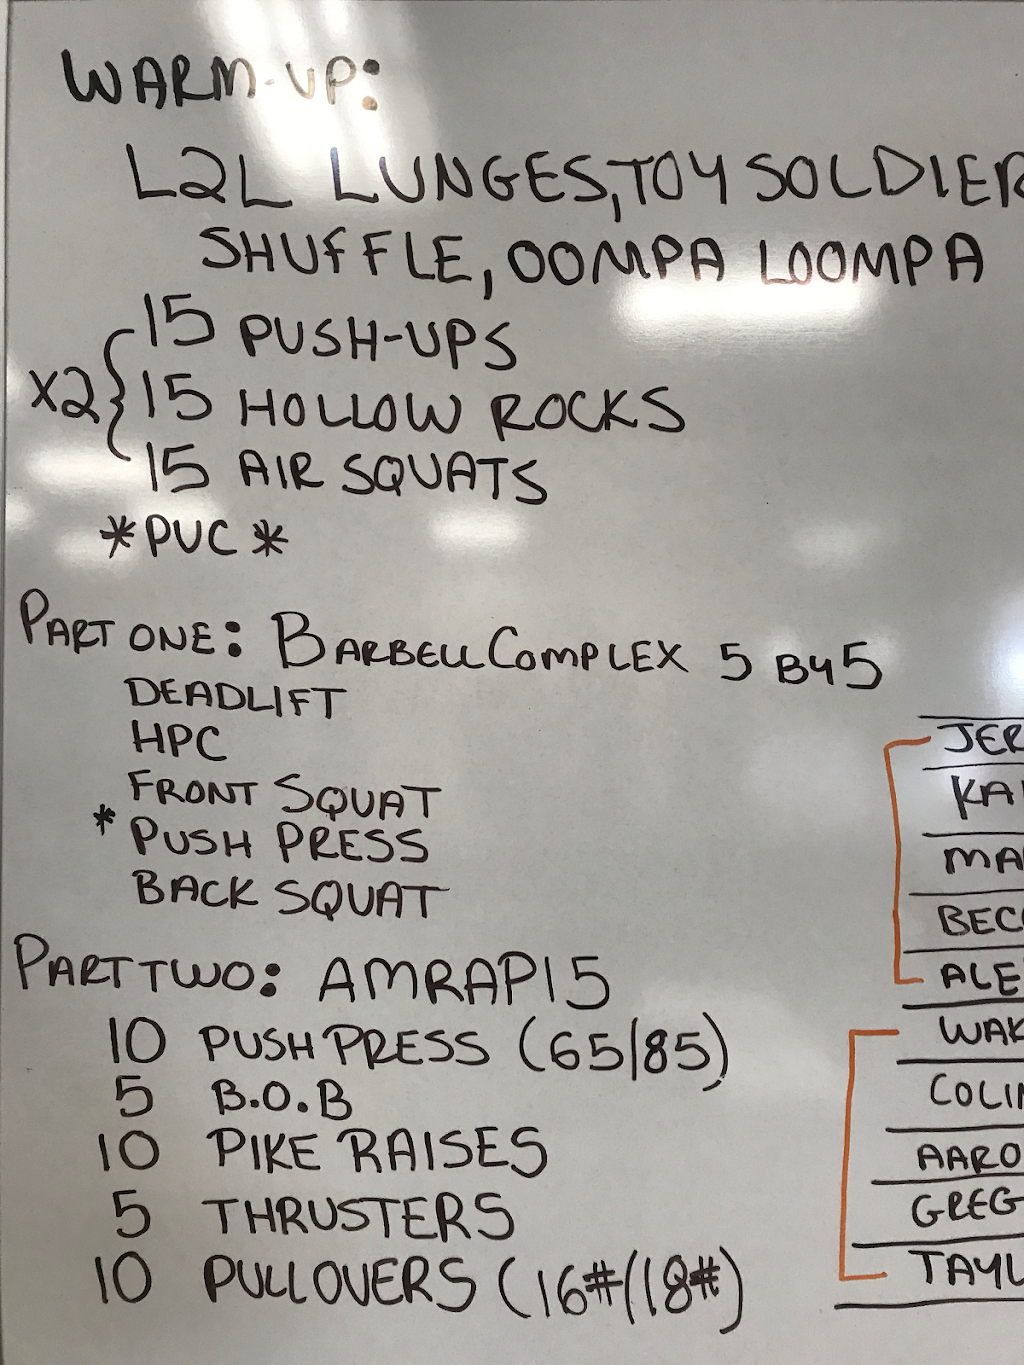 WARM-UP:
L2L LUNGES, TOY SOLDIER
SHUFFLE, OOMPA LOOMPA
15 PUSH-UPS
X2 { 15 HOLLOW ROCKS
15 AIR SQUATS
*PVC*
PART ONE: BARBELL COMPLEX 5 BY 5
DEADLIFT
HPC
FRONT SQUAT
* PUSH PRESS
BACK SQUAT
PART TWO: AMRAP15
10 PUSH PRESS (65/85)
5 B.O.B
10 PIKE RAISES
5 THRUSTERS
10 PULLOVERS (16#/18#)
JER
KAI
MA
BECC
ALE
WAK
COLIN
AARO
GREG
TAYL